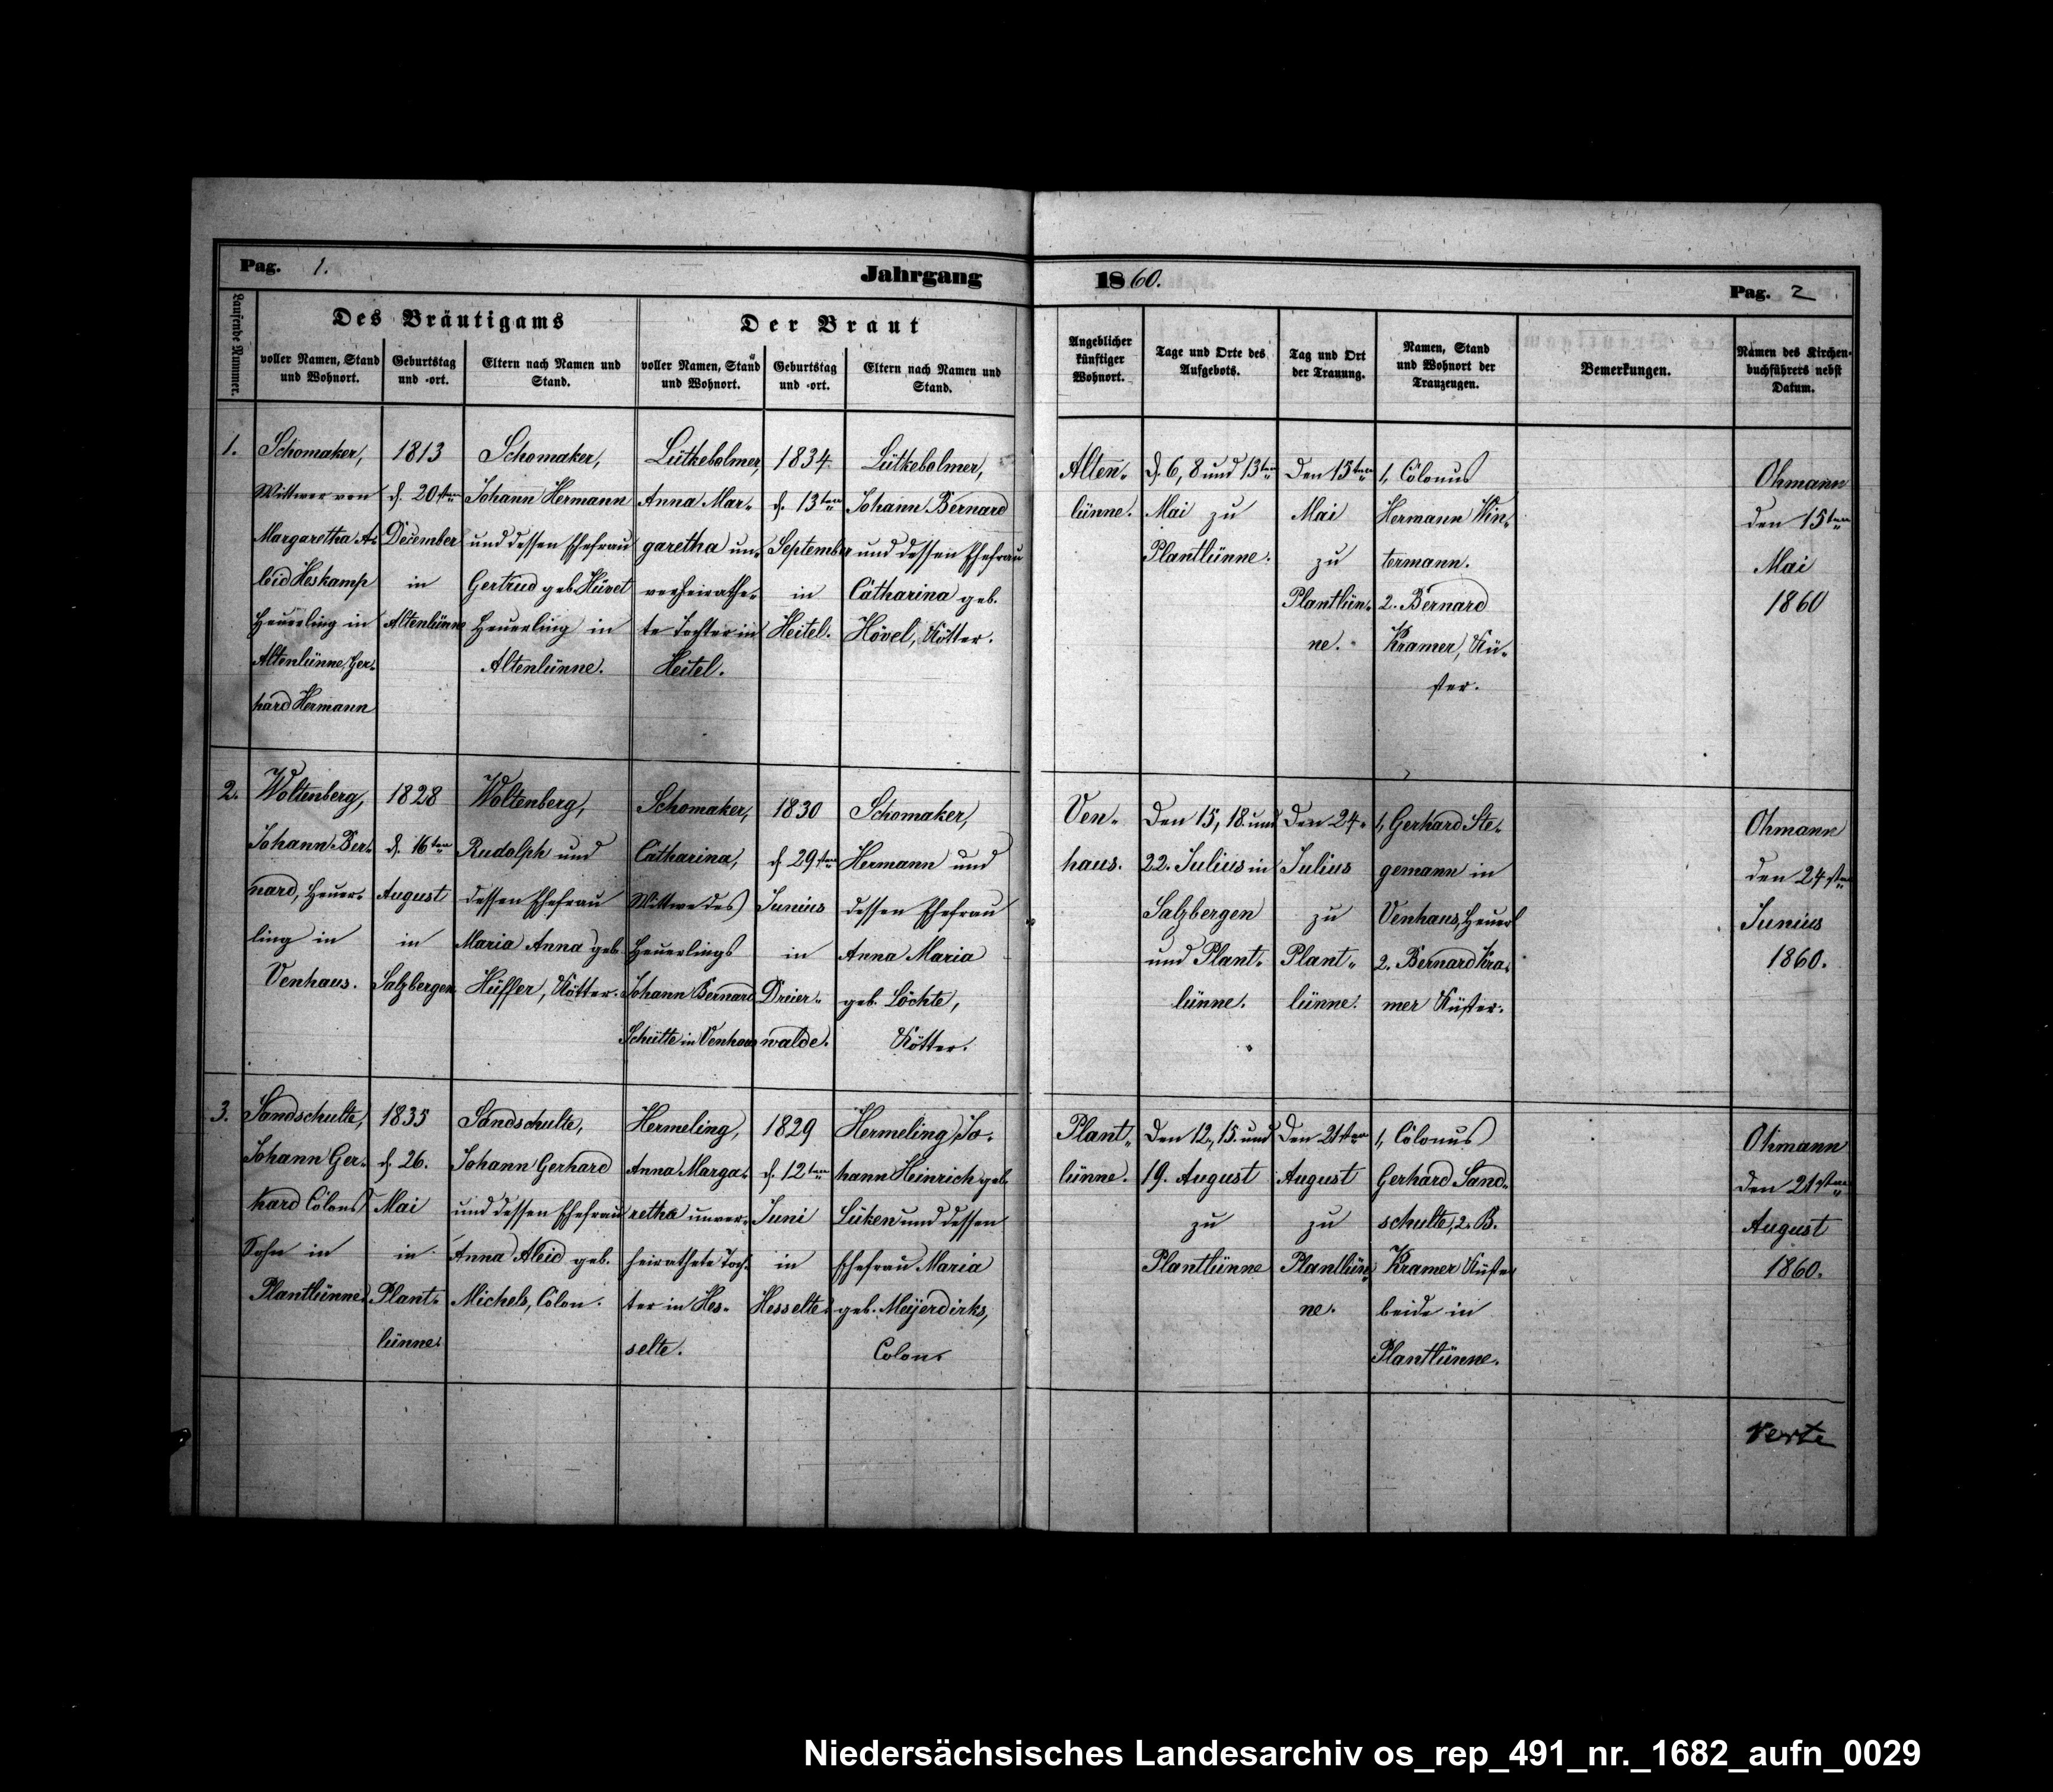 Pag. 1.
Jahrgang
1860.
Pag. 2
Laufende Nummer.
Des Bräutigams
Der Braut
voller Namen, Stand
und Wohnort.
Geburtstag
und -ort.
Eltern nach Namen und
Stand.
voller Namen, Stand
und Wohnort.
Geburtstag
und -ort.
Eltern nach Namen und
Stand.
Angeblicher
künftiger
Wohnort.
Tage und Orte des
Aufgebots.
Tag und Ort
der Trauung.
Namen, Stand
und Wohnort der
Trauzeugen.
Bemerkungen.
Namen des Kirchen-
buchführers nebst
Datum.
1.
Schomaker,
Wittwer von
Margaretha A-
leid Heskamp
Heuerling in
Altenlünne, Ger-
hard Hermann
1813
d. 20sten
December
in
Altenlünne
Schomaker,
Johann Hermann
und dessen Ehefrau
Gertrud geb. Hüvet
Heuerling in
Altenlünne.
Lütkebolmer,
Anna Mar-
garetha un-
verheirathe-
te Tochter in
Heitel.
1834
d. 13ten
September
in
Heitel.
Lütkebolmer,
Johann Bernard
und dessen Ehefrau
Catharina geb.
Hövel, Kötter.
Alten-
lünne.
d. 6, 8 und 13ten
Mai zu
Plantlünne.
Den 15ten
Mai
zu
Plantlün-
ne.
1, Colonus
Hermann Win-
termann.
2. Bernard
Kramer, Kü-
ster.
Ohmann
den 15ten
Mai
1860
2.
Woltenberg,
Johann Ber-
nard, Heuer-
ling in
Venhaus.
1828
d. 16ten
August
in
Salzbergen
Woltenberg,
Rudolph und
dessen Ehefrau
Maria Anna geb.
Hüffer, Kötter.
Schomaker,
Catharina,
Wittwe des
Heuerlings
Johann Bernard
Schütte in Venhaus
1830
d. 29sten
Junius
in
Dreier-
walde.
Schomaker,
Hermann und
dessen Ehefrau
Anna Maria
geb. Löchte,
Kötter.
Ven-
haus.
Den 15, 18. und
22. Julius in
Salzbergen
und Plant-
lünne.
Den 24.
Julius
zu
Plant-
lünne.
1, Gerhard Ste-
gemann in
Venhaus, Heuerl
2. Bernard Kra-
mer Küster.
Ohmann
den 24sten
Junius
1860.
3.
Sandschulte,
Johann Ger-
hard Colons
Sohn in
Plantlünne.
1835
d. 26.
Mai
in
Plant-
lünne.
Sandschulte,
Johann Gerhard
und dessen Ehefrau
Anna Aleid geb.
Michels, Colon.
Hermeling,
Anna Marga-
retha unver-
heirathete Toch-
ter in Hes-
selte.
1829
d. 12ten
Juni
in
Hesselte.
Hermeling, Jo-
hann Heinrich geb.
Lüken und dessen
Ehefrau Maria
geb. Meÿerdirks,
Colon.
Plant-
lünne.
Den 12., 15. und
19. August
zu
Plantlünne
Den 21sten
August
zu
Plantlün-
ne.
1, Colonus
Gerhard Sand-
schulte, 2. B.
Kramer Küster
beide in
Plantlünne.
Ohmann
den 21sten
August
1860.
verte
Niedersächsisches Landesarchiv os_rep_491_nr._1682_aufn_0029